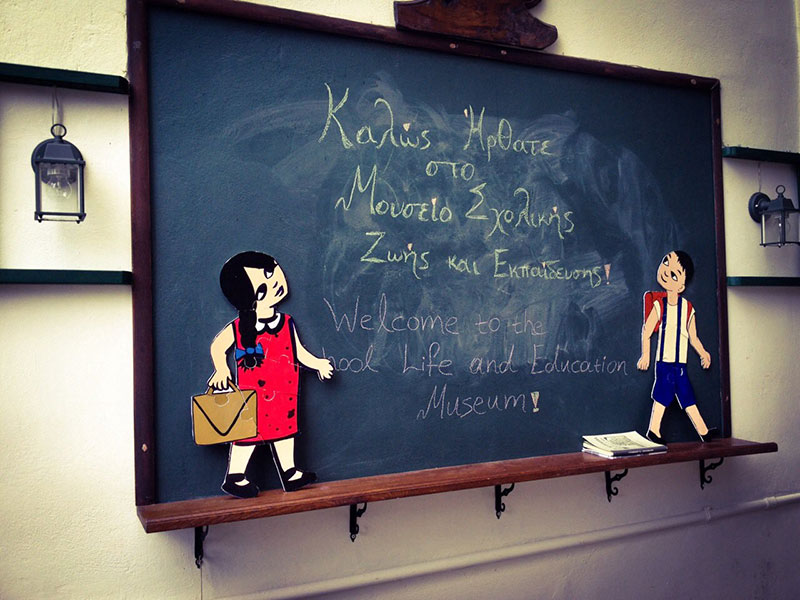 Καλώς Ήρθατε
στο
Μουσείο Σχολικής
Ζωής και Εκπαίδευσης!
Welcome to the
hool Life and Education
Museum!